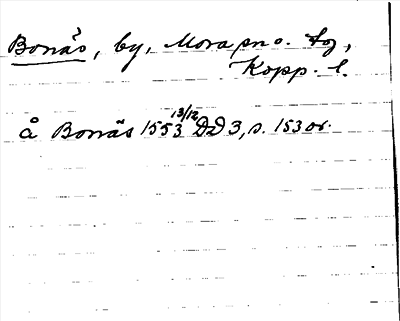 Bonäs, by, Mora sn o. tg,
Kopp. l.
å Bonäs 1553 13/12 DD 3, s. 153 or.